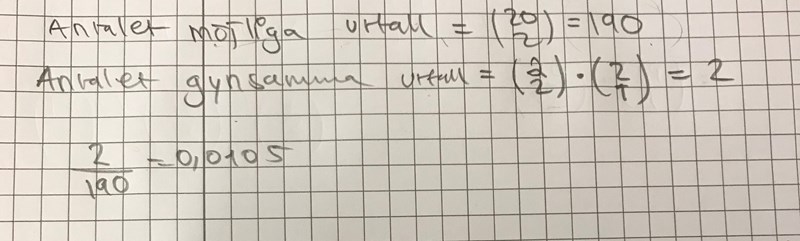 Antalet möjliga utfall = (20 2) = 190
Antalet gynsamma utfall = (2 2) · (2 1) = 2
2/190 = 0,0105